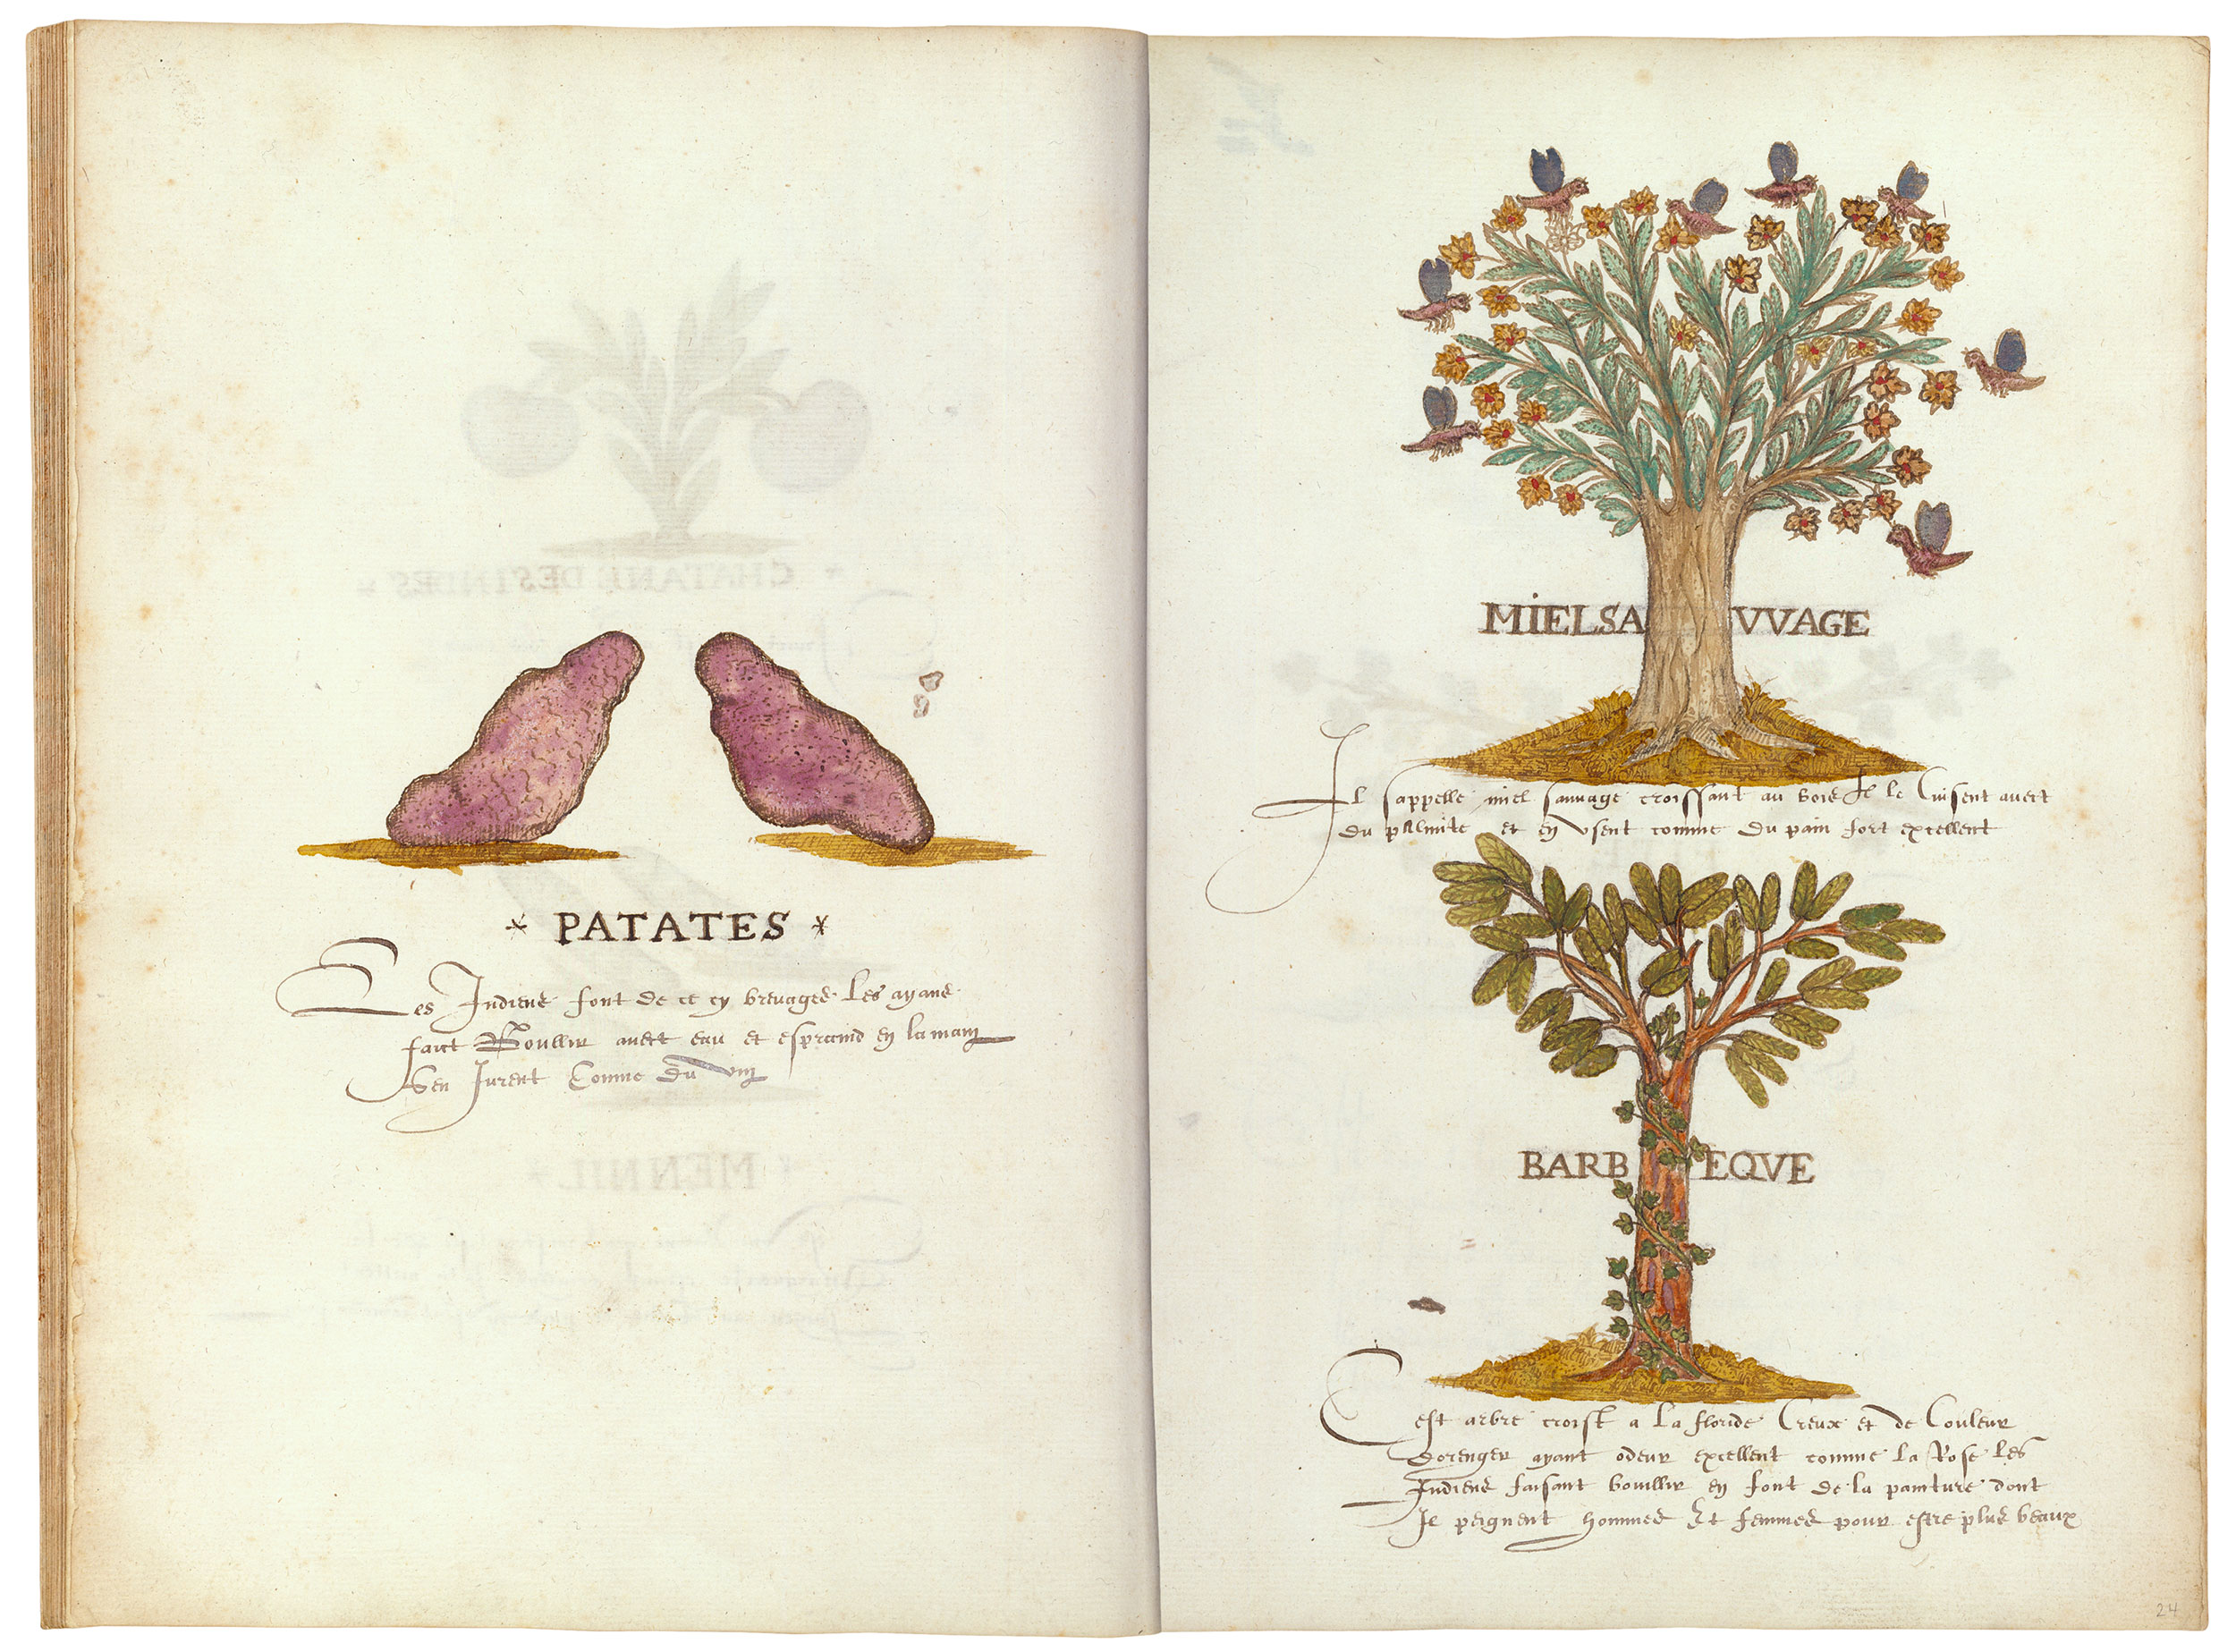 * PATATES *
Les Indiens font de ce en breuages les ayans
faict Boullir auect eau et espraind en la main
Sen Jurent Comme du vin
MIELSAVVAGE
Il sappelle miel sauuage croissant au bois Il le Cuisent auect
du palmite et en vsent comme du pain fort excellent
BARBEQVE
Cest arbre croist a La floride Creux et de Couleur
dorenger ayant odeur excellent comme La Rose Les
Indiens faisant bouillir en font de la painture dont
Il peignent hommes Et femmes pour estre plus beaux
24